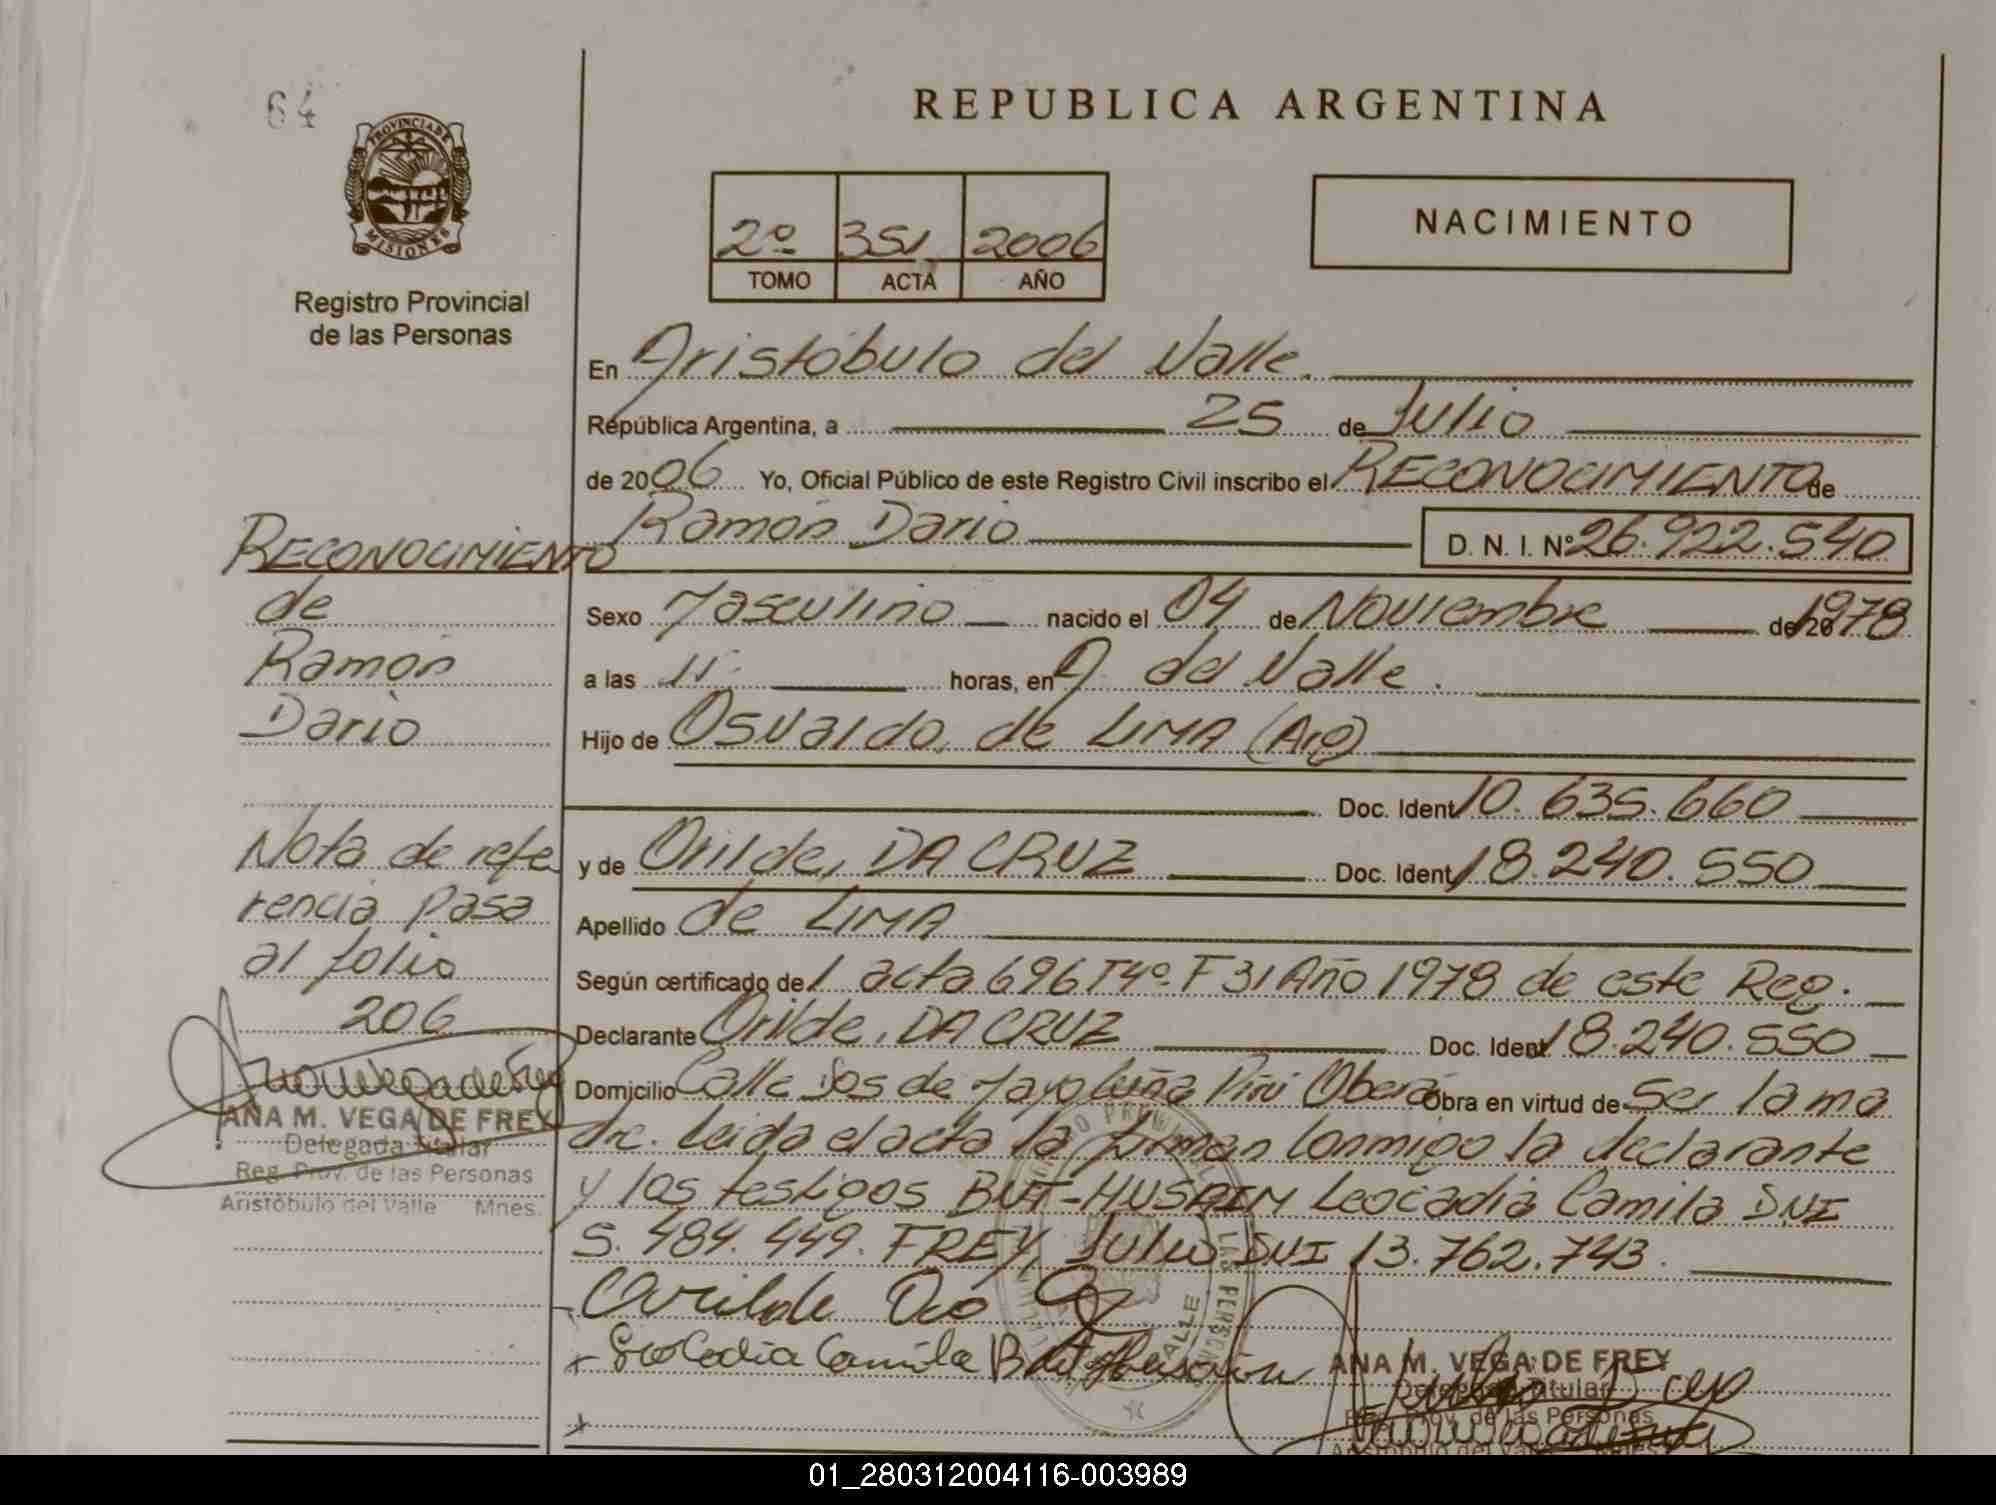 64
PROVINCIA DE
MISIONES
Registro Provincial
de las Personas
REPUBLICA ARGENTINA
2º 351 2006
TOMO ACTA AÑO
NACIMIENTO
En Aristóbulo del Valle.
República Argentina, a 25 de Julio
de 2006 Yo, Oficial Público de este Registro Civil inscribo el RECONOCIMIENTO de
Ramón Dario D. N. I. Nº 26.922.540
Sexo Masculino nacido el 04 de Noviembre de 20 1978
a las 11 horas, en A. del Valle.
Hijo de Osvaldo, de LIMA (Arg)
Doc. Ident 10.635.660
y de Orilde, DA CRUZ Doc. Ident 18.240.550
Apellido de LIMA
Según certificado de l acta 696 T4º F 31 Año 1978 de este Reg.
Declarante Orilde, DA CRUZ Doc. Ident 18.240.550
Domicilio Calle Dos de Mayo Pirí Oberá Obra en virtud de Ser la ma
dre. Leida el acta la firman conmigo la declarante
y los testigos BUT-HUSAIM Leocadia Camila DNI
5.484.449. FREY, Julio DNI 13.762.743.
Leocadia Camila But Husaim
ANA M. VEGA DE FREY
Delegada Titular
Reg. Prov. de las Personas
Aristóbulo del Valle Mnes.
RECONOCIMIENTO
de
Ramón
Dario
Nota de refe
rencia pasa
al folio
206
ANA M. VEGA DE FREY
Delegada Titular
Reg. Prov. de las Personas
Aristóbulo del Valle Mnes.
01_280312004116-003989